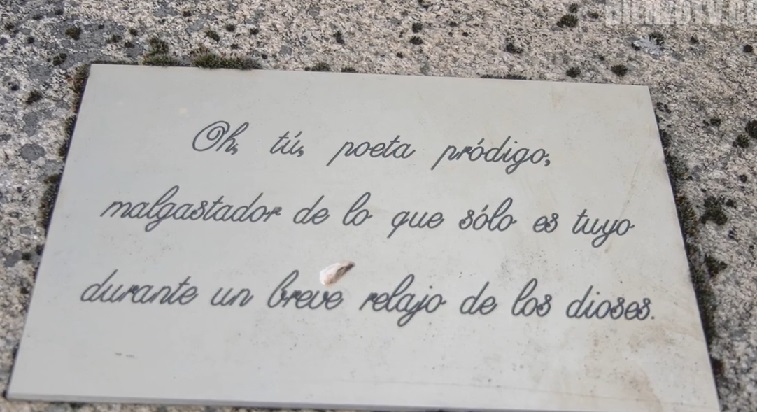 Oh, tú, poeta pródigo,
malgastador de lo que sólo es tuyo
durante un breve relajo de los dioses.